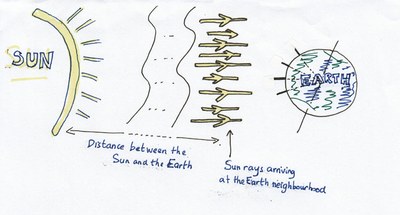 SUN
EARTH
Distance between the
Sun and the Earth
Sun rays arriving
at the Earth neighbourhood